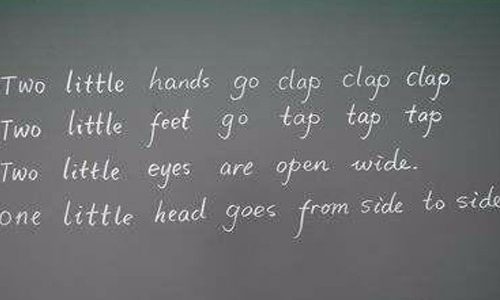 Two little hands go clap clap clap
Two little feet go tap tap tap
Two little eyes are open wide.
one little head goes from side to side